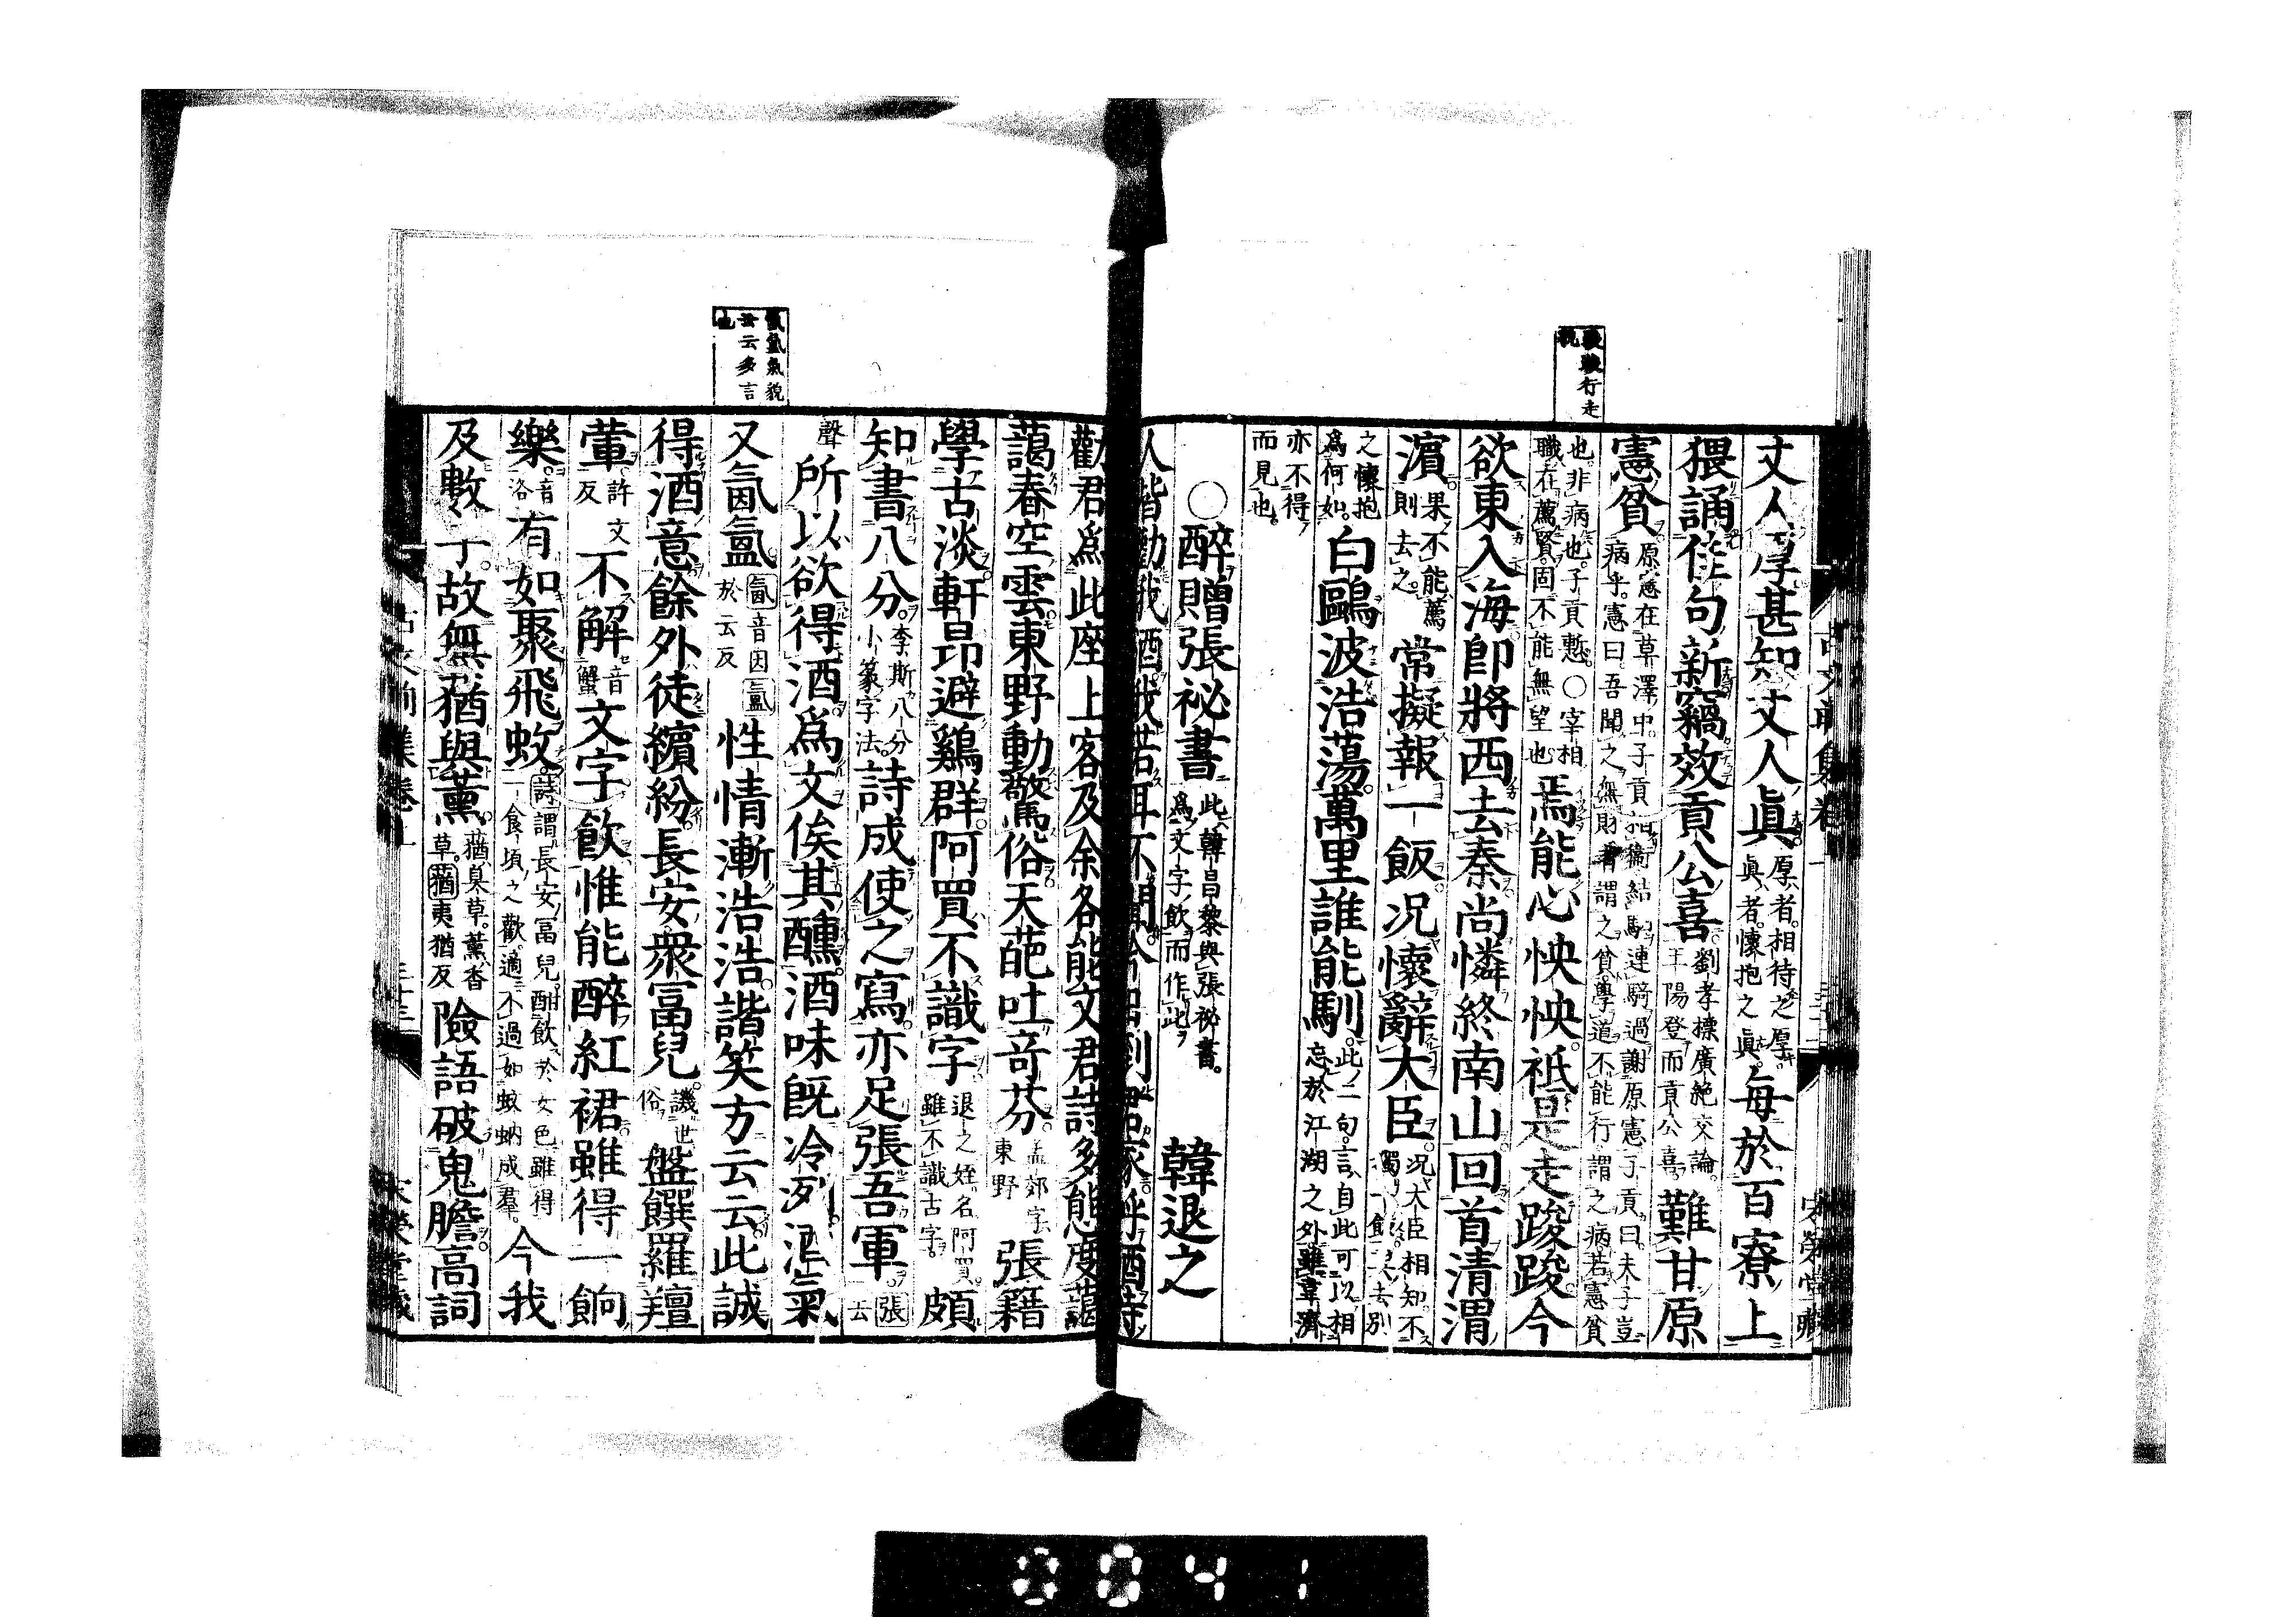 踆踆行走
貌
丈人厚甚知丈人眞厚者相待之厚。眞者懷抱之眞。每於百寮上
猥誦佳句新竊效貢公喜劉孝標廣絶交論。王陽登而貢公喜。難甘原
憲貧原憲在草澤中。子貢結駟連騎過謝原憲子貢曰。夫子豈病乎。憲曰。吾聞之無財者謂之貧。學道不能行謂之病若憲貧
也。非病也。子貢慙。○宰相職在薦賢。固不能無望也焉能心怏怏。祇是走踆踆。今
欲東入海卽將西去秦尚憐終南山回首清渭
濱果不能薦則去之。常擬報一飯况懷辭大臣况大臣相知。不
之懷抱爲何如。白鷗波浩蕩。萬里誰能馴此二句。言自此可以相忘於江湖之外。雖韋濟
亦不得而見也。
○醉贈張祕書此韓昌黎與張祕書。爲文字飲而作此韓退之
人皆勸我酒我若耳不聞今日到君家呼酒持
氤氳氣貌
云云多言
也
勸君爲此座上客及余各能文君詩多態度藹
藹春空雲東野動驚俗天葩吐奇芬孟郊字東野張籍
學古淡軒昂避鷄群阿買不識字退之姪名阿買。雖不識古字。頗
知書八分。李斯八分小篆字法。詩成使之寫亦足張吾軍張去
聲所以欲得酒爲文俟其醺。酒味旣冷冽酒氣
又氤氳氤音因氳於云反性情漸浩浩諧笑方云云此誠
得酒意餘外徒繽紛。長安衆冨兒譏世俗盤饌羅羶
葷許文反不解音蟹文字飲惟能醉紅裙雖得一餉
樂音洛有如聚飛蚊。詩謂長安冨兒酣飲於女色雖得一食頃之歡。適不過如蚊蚋成羣。今我
及數子。故無蕕與薰。蕕臭草。薰香草。蕕夷猶反險語破鬼膽高詞